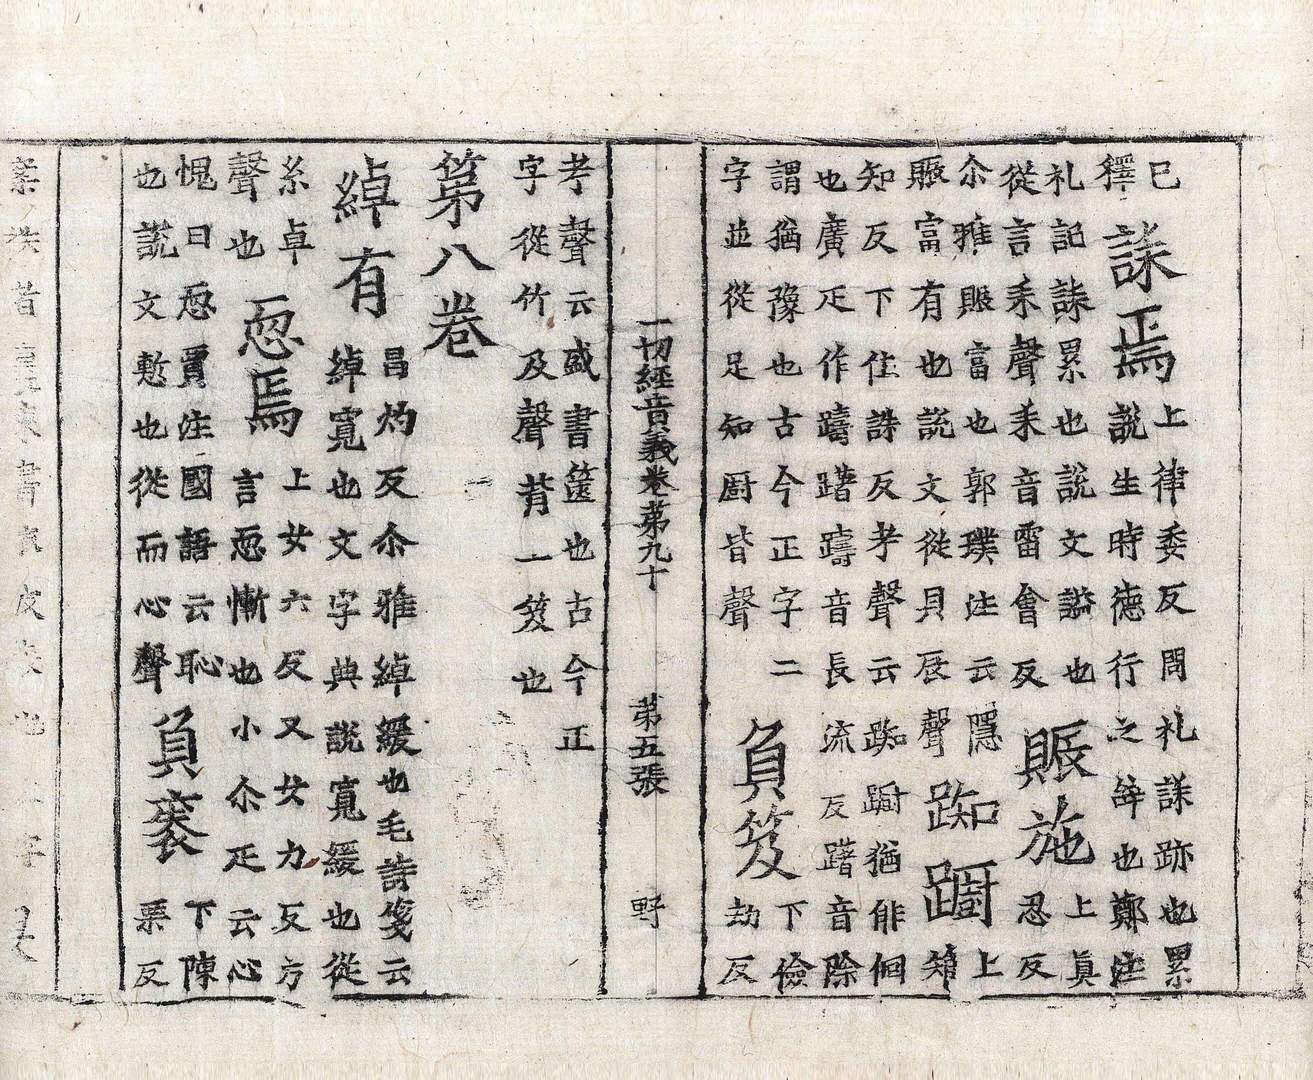 已
釋
誄焉
上律委反周礼誄跡也累
説生時德行之辝也鄭注
礼記誄累也說文謚也
從言耒聲耒音雷會反
賑施
上真
忍反
尒雅賑富也郭璞注云隱
賑富有也說文從貝辰聲
踟蹰
上
知反下住誅反考聲云踟蹰猶俳佪
也廣疋作躊躇躊音長流反躇音除
謂猶豫也古今正字二
字並從足知厨皆聲
負笈
下儉
劫反
一切經音義卷第九十 第五張 野
考聲云盛書篋也古今正
字從竹及聲背一笈也
第八卷
綽有
昌灼反尒雅綽緩也毛詩箋云
綽寬也文字典說寬緩也從
糸卓
聲也
恧焉
上女六反又女力反方
言恧慚也小尒疋云心
愧曰恧賈注國語云恥
也說文慙也從而心聲
負袠
下陳
栗反